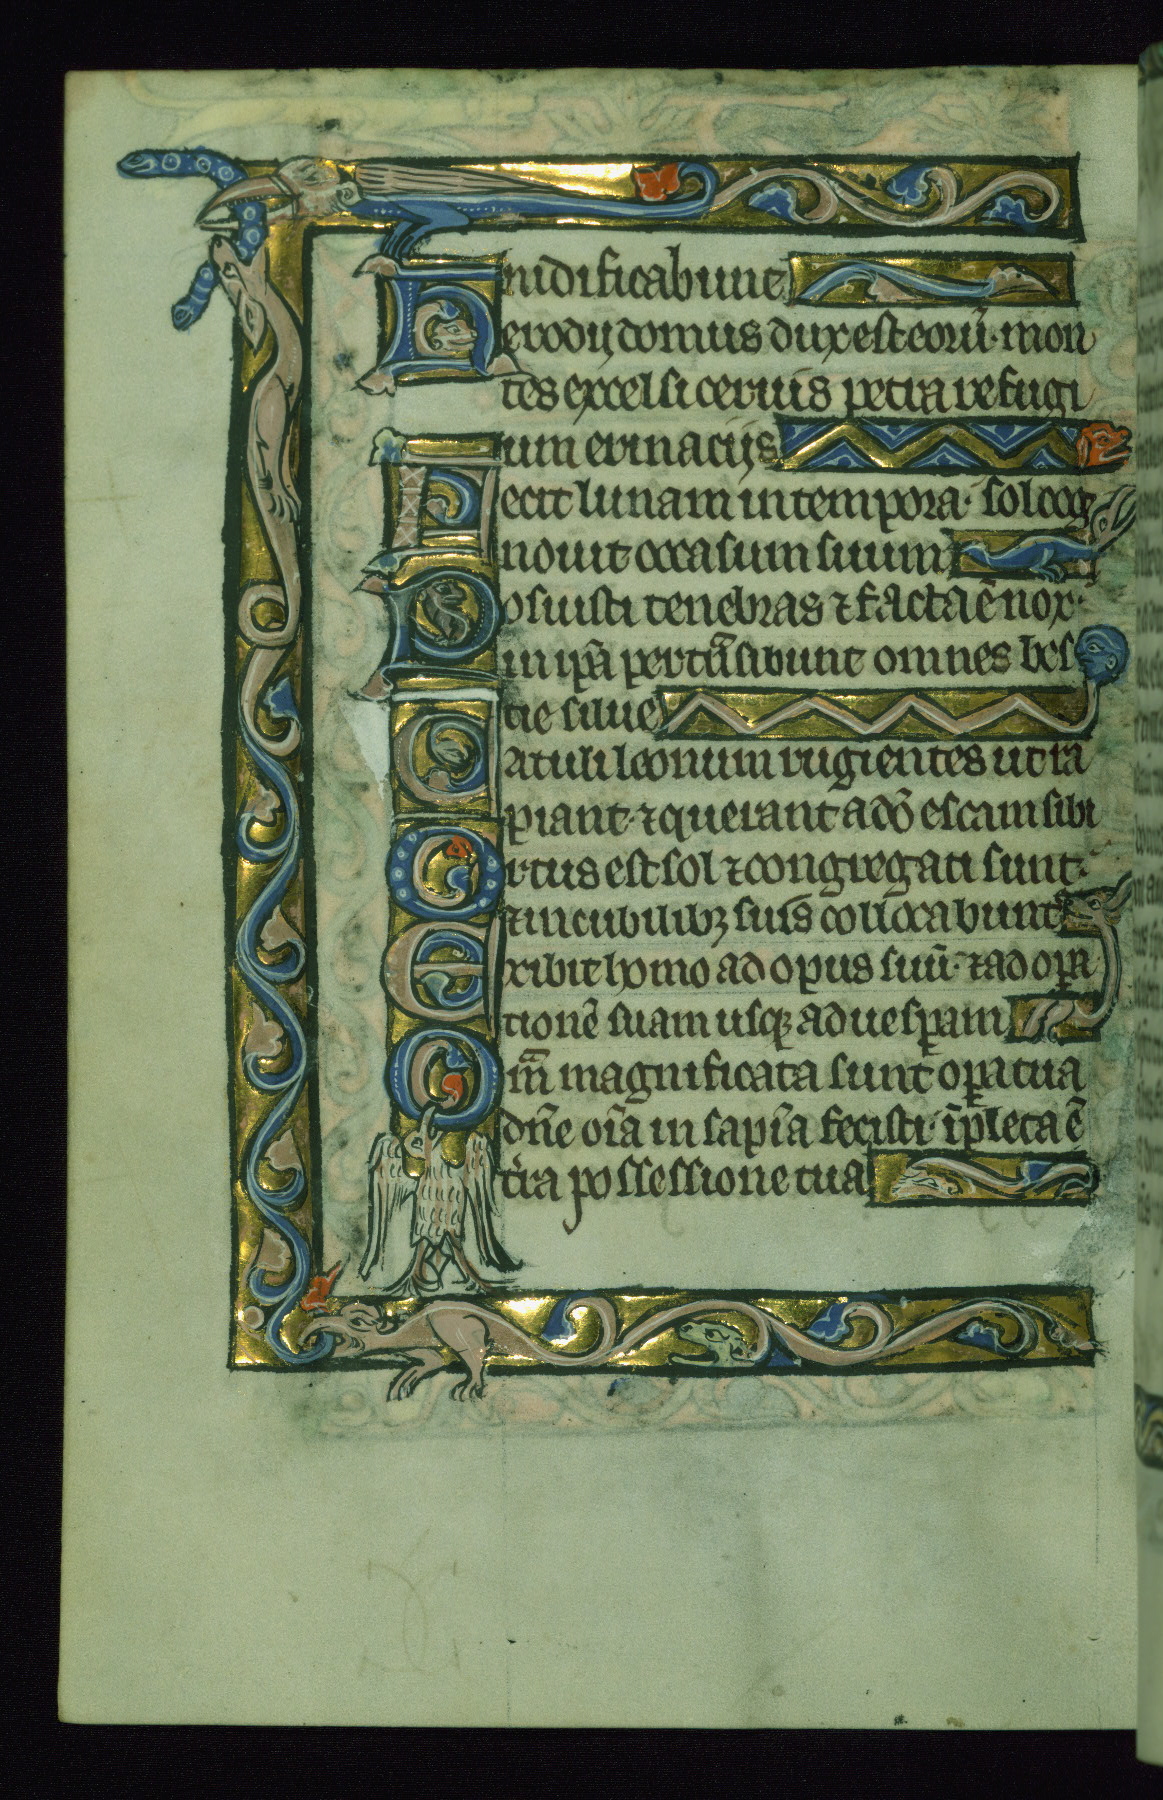 nidificabunt
Herodij domus dux est eorū· mon
tes excelsi ceruis petra refugi
um erinacijs
Fecit lunam in tempora· sol cog
nouit occasum suum
Posuisti tenebras ⁊ facta ē nox·
in ip̄a pertrāsibunt omnes bes
tie silue
Catuli leonum rugientes ut ra
piant· ⁊ querant a dō escam sibi
Ortus est sol ⁊ congregati sunt·
⁊ in cubilibꝫ suis collocabunt᷒
Exibit homo ad opus suū· ⁊ ad oꝑa
tionē suam usqꝫ ad uesꝑam
Qm̄ magnificata sunt oꝑa tua
dn̄e oīa in sapiā fecisti· īpleta ē
t̄ra possessione tua